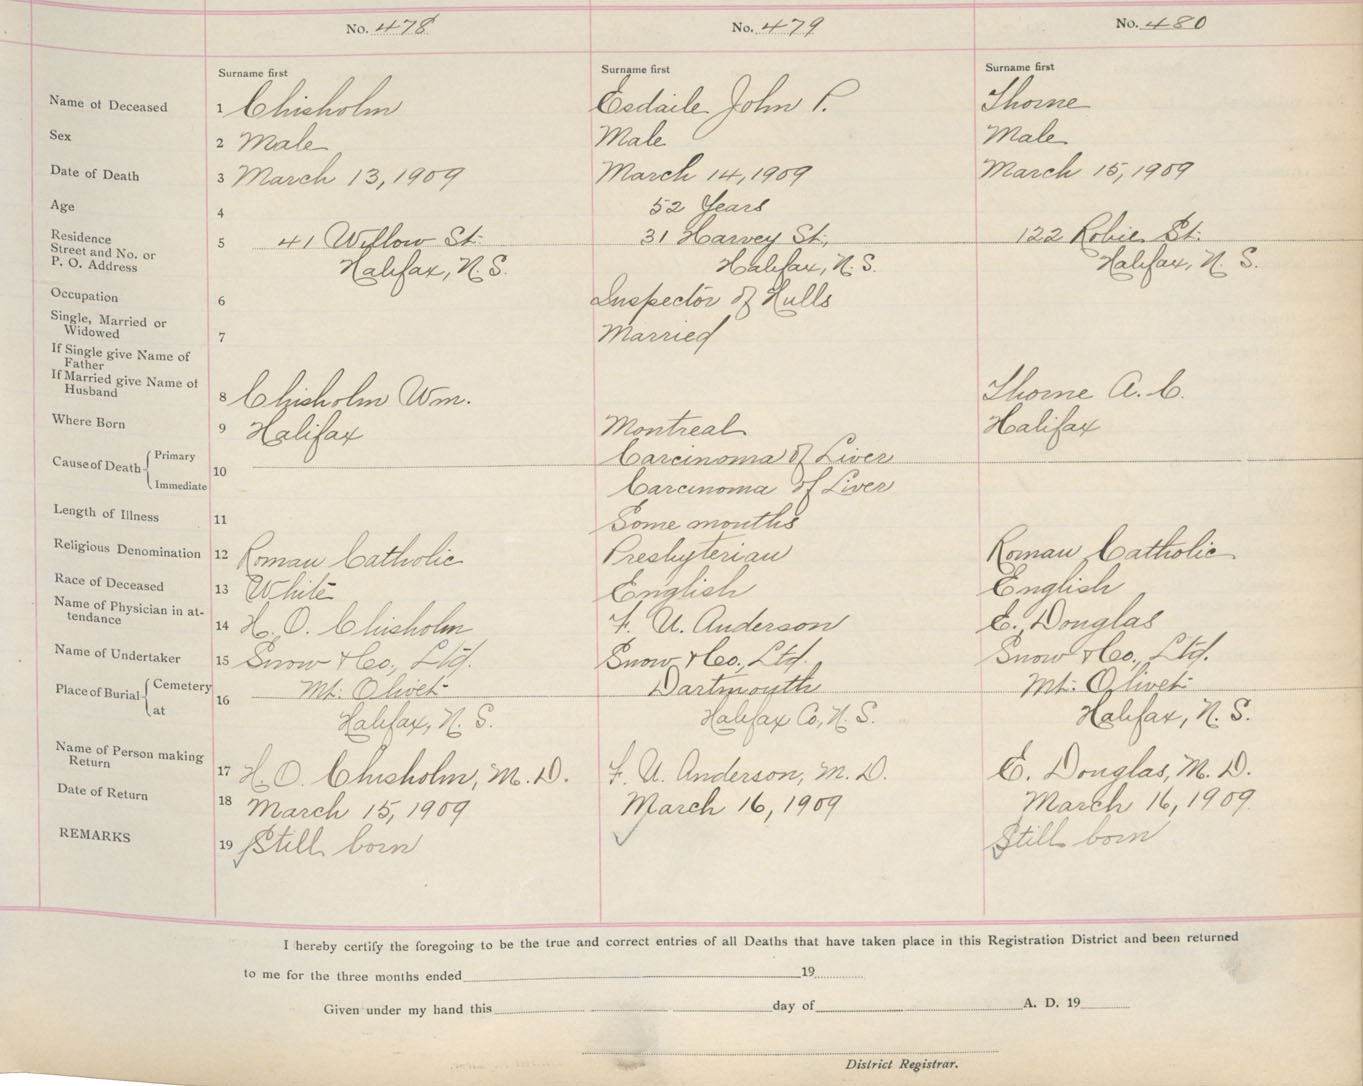 No. 478 No. 479 No. 480
Surname first Surname first Surname first
Name of Deceased 1 Chisholm Esdaile John P. Thorne
Sex 2 Male Male Male
Date of Death 3 March 13, 1909 March 14, 1909 March 15, 1909
Age 4 52 Years
Residence 5 41 Willow St. 31 Harvey St., 122 Robie St.
Street and No. or
P. O. Address Halifax, N. S. Halifax, N. S. Halifax, N. S.
Occupation 6 Inspector of Hulls
Single, Married or
Widowed 7 Married
If Single give Name of
Father
If Married give Name of
Husband 8 Chisholm Wm. Thorne A. C.
Where Born 9 Halifax Montreal Halifax
Cause of Death Primary 10 Carcinoma of Liver
Immediate Carcinoma of Liver
Length of Illness 11 Some months
Religious Denomination 12 Roman Catholic Presbyterian Roman Catholic
Race of Deceased 13 White English English
Name of Physician in at-
tendance 14 H. O. Chisholm F. U. Anderson E. Douglas
Name of Undertaker 15 Snow & Co., Ltd. Snow & Co., Ltd. Snow & Co., Ltd.
Place of Burial Cemetery 16 Mt. Olivet Dartmouth Mt. Olivet
at Halifax, N. S. Halifax Co, N. S. Halifax, N. S.
Name of Person making
Return 17 H. O. Chisholm, M. D. F. U. Anderson, M. D. E. Douglas, M. D.
Date of Return 18 March 15, 1909 March 16, 1909 March 16, 1909
REMARKS 19 Still born Still born
I hereby certify the foregoing to be the true and correct entries of all Deaths that have taken place in this Registration District and been returned
to me for the three months ended 19
Given under my hand this day of A. D. 19
District Registrar.